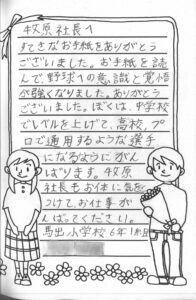 牧原社長へ
すてきなお手紙をありがとう
ございました。お手紙を読
んで野球への意識と覚悟
が強くなりました。ありがとう
ございました。ぼくは、中学校
でレベルを上げて、高校、プ
ロで通用するような選手
になるようにがん
ばります。牧原
社長もお体に気を
つけて、お仕事が
んばってください。
馬出小学校6年1組